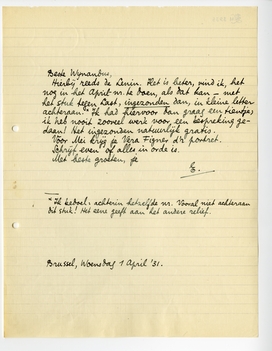 Beste Wijnandus,
Hierbij reeds de Lenin. Het is beter, vind ik, het
nog in het April nr. te doen, als dat kan – met
het stuk tegen Last, ingezonden dan, in kleine letter
achteraan.* Ik had hiervoor dan graag een tientje;
ik heb nooit zooveel werk voor een bespreking ge-
daan! Het ingezonden natuurlijk gratis.
Voor Mei krijg je Vera Figner d'r portret.
Schrijf even of alles in orde is.
Met beste groeten, je
E.
* Ik bedoel: achterin hetzelfde nr. Vooral niet achteraan
dit stuk! Het eene geeft aan het andere relief.
Brussel, Woensdag 1 April '31.